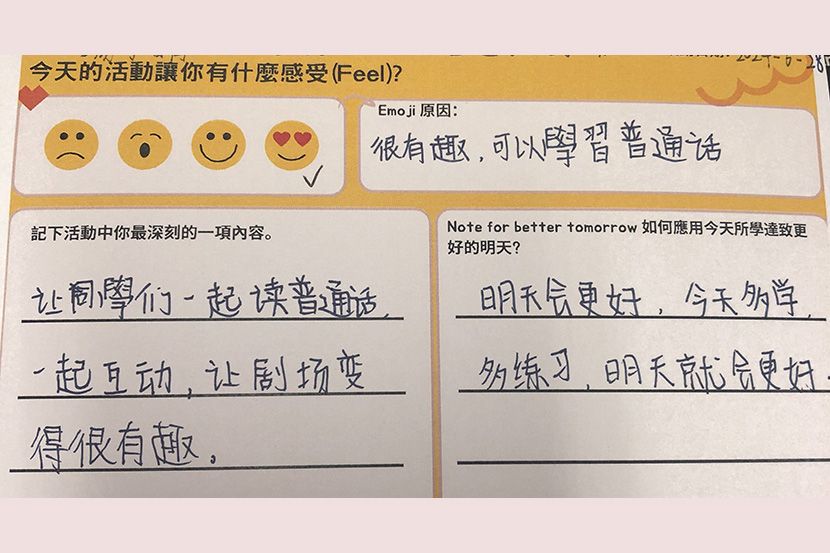 今天的活動讓你有什麼感受(Feel)?
2024-6-28
Emoji 原因:
很有趣,可以學習普通话
記下活動中你最深刻的一項內容。
让同學们一起读普通话,
一起互动,让剧场变
得很有趣。
Note for better tomorrow 如何應用今天所學達致更
好的明天?
明天会更好,今天多学,
多练习,明天就会更好.